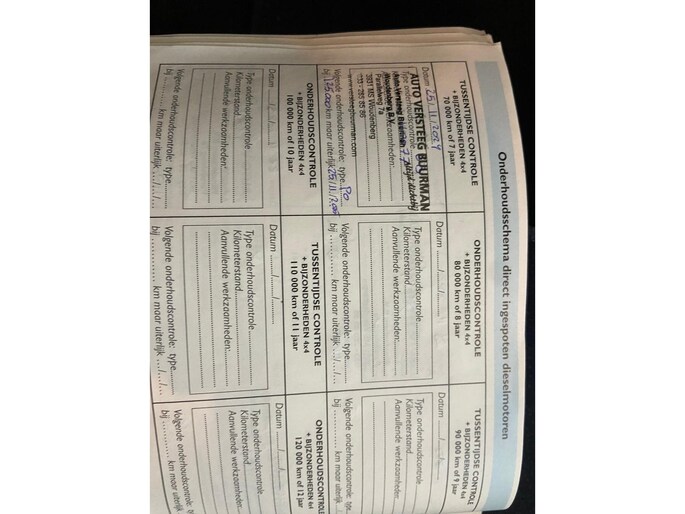 Onderhoudsschema direct ingespoten dieselmotoren
TUSSENTIJDSE CONTROLE
+ BIJZONDERHEDEN 4x4
70 000 km of 7 jaar
Datum
AUTO VERSTEEG BUURMAN
Type onderhoudscontrole
Auto Versteeg Buurman
Woudenberg B.V.
Parallelweg 7a
3931 MS Woudenberg
werkzaamheden:
Volgende onderhoudscontrole: type PO
bij 125000 km maar uiterlijk
ONDERHOUDSCONTROLE
+ BIJZONDERHEDEN 4x4
80 000 km of 8 jaar
Datum ....../....../......
Type onderhoudscontrole
Kilometerstand
Aanvullende werkzaamheden:
Volgende onderhoudscontrole: type
bij ............ km maar uiterlijk .../.../...
TUSSENTIJDSE CONTROLE
+ BIJZONDERHEDEN 4x4
90 000 km of 9 jaar
Datum
Type onderhoudscontrole
Kilometerstand
Aanvullende werkzaamheden:
Volgende onderhoudscontrole: type
bij ............ km maar uiterlijk .../.../...
ONDERHOUDSCONTROLE
+ BIJZONDERHEDEN 4x4
100 000 km of 10 jaar
Datum
Type onderhoudscontrole
Kilometerstand
Aanvullende werkzaamheden:
Volgende onderhoudscontrole: type
bij ............ km maar uiterlijk .../.../...
TUSSENTIJDSE CONTROLE
+ BIJZONDERHEDEN 4x4
110 000 km of 11 jaar
Datum ....../....../......
Type onderhoudscontrole
Kilometerstand
Aanvullende werkzaamheden:
Volgende onderhoudscontrole: type
bij ............ km maar uiterlijk .../.../...
ONDERHOUDSCONTROLE
+ BIJZONDERHEDEN 4x4
120 000 km of 12 jaar
Datum
Type onderhoudscontrole
Kilometerstand
Aanvullende werkzaamheden:
Volgende onderhoudscontrole: type
bij ............ km maar uiterlijk